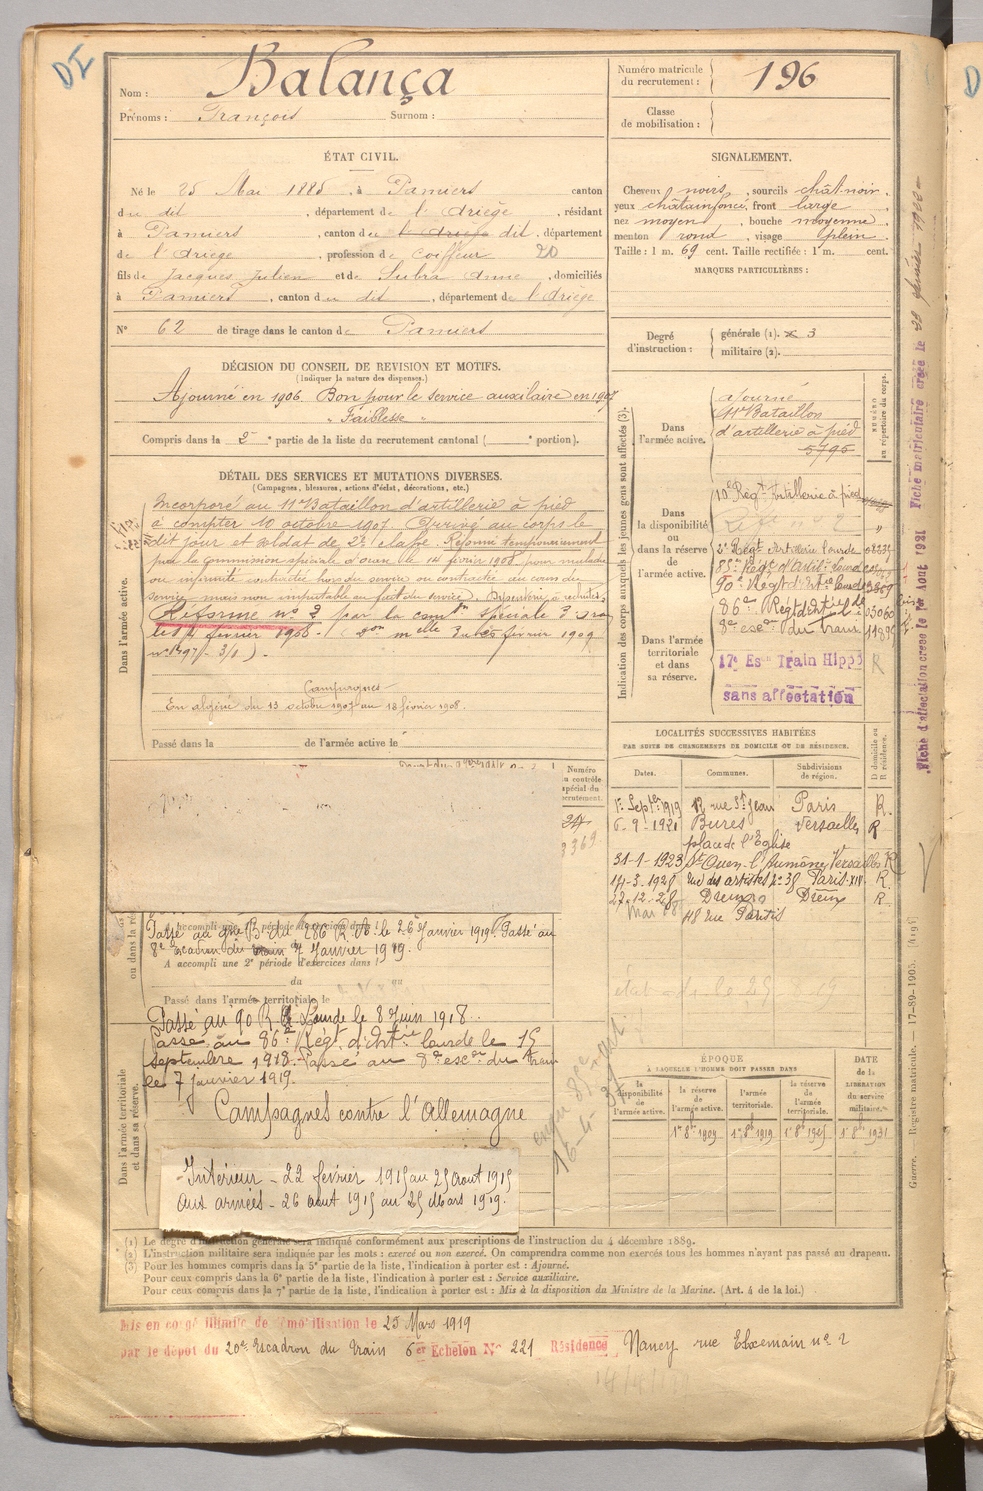 DI
Nom : Balança
Prénoms : François Surnom :
Numéro matricule du recrutement : 196
Classe de mobilisation :
ÉTAT CIVIL.
Né le 25 Mai 1885, à Pamiers canton
du dit, département de l'Ariège, résidant
à Pamiers, canton du dit, département
de l'Ariège, profession de coiffeur 20
fils de Jacques Julien et de Subra Anne, domiciliés
à Pamiers, canton du dit, département de l'Ariège
N° 62 de tirage dans le canton de Pamiers
SIGNALEMENT.
Cheveux noirs, sourcils chât-noir,
yeux châtain foncé, front large
nez moyen, bouche moyenne
menton rond, visage plein.
Taille : 1 m. 69 cent. Taille rectifiée : 1 m. cent.
MARQUES PARTICULIÈRES :
Degré d'instruction :
générale (1). 3
militaire (2).
DÉCISION DU CONSEIL DE REVISION ET MOTIFS.
(Indiquer la nature des dispenses.)
Ajourné en 1906. Bon pour le service auxiliaire en 1907
" Faiblesse "
Compris dans la 2e partie de la liste du recrutement cantonal ( e portion).
DÉTAIL DES SERVICES ET MUTATIONS DIVERSES.
(Campagnes, blessures, actions d'éclat, décorations, etc.)
Dans l'armée active.
Incorporé au 11e Bataillon d'artillerie à pied
à compter 10 octobre 1907. Arrivé au corps le
dit jour et soldat de 2e classe. Réformé temporairement
par la commission spéciale d'Oran le 14 février 1908 pour maladie
ou infirmité contractée hors du service ou contractée au cours du
service mais non imputable au fait du service.
Réforme n° 2 par la comon spéciale d'Oran
Campagnes
En algérie du 13 octobre 1907 au 18 février 1908.
Passé dans la de l'armée active le
Indication des corps auxquels les jeunes gens sont affectés (3).
NUMÉRO au répertoire du corps.
Dans l'armée active.
ajourné
11e Bataillon
d'artillerie à pied
5795
Dans la disponibilité ou dans la réserve de l'armée active.
10e Régt Artillerie à pied
2e Régt Artillerie lourde
85e Régt d'Artil. lourde
90e Régt d'Art ie lourde
86e Régt d'Art ie l de
8e escon du train
Dans l'armée territoriale et dans sa réserve.
17e Esn Train Hippo R
sans affectation
Fiche d'affectation créée le 1er Aout 1921 Fiche matriculaire créée le
LOCALITÉS SUCCESSIVES HABITÉES
PAR SUITE DE CHANGEMENTS DE DOMICILE OU DE RÉSIDENCE.
Dates. Communes. Subdivisions de région. D domicile ou R résidence.
1er Septe 1919 12 rue St Jean Paris R.
6-9-1921 Bures Versailles R
place de l'Eglise
31-1-1923 St Ouen-l'Aumône Versailles R
14-3-1928 rue des artistes n° 38 Paris-XIV R.
27-12-28 Dreux Dreux R
Numéro au contrôle spécial du recrutement.
A accompli une 1re période
Passé au 286 R. le 26 janvier 1919. Passé au
8e escadron du train 7 Janvier 1919.
A accompli une 2e période d'exercices dans l
du au
Passé dans l'armée territoriale le
Passé au 90 R. A. Lourde le 8 Juin 1918.
Dans l'armée territoriale et dans sa réserve.
Passé au 86e Régt d'Art ie lourde le 15
septembre 1918. Passé au 8e escon du train
le 7 janvier 1919.
Campagnes contre l'Allemagne
Intérieur - 22 février 1915 au 25 Aout 1915
aux armées - 26 aout 1915 au 25 Mars 1919.
ÉPOQUE
À LAQUELLE L'HOMME DOIT PASSER DANS
la disponibilité de l'armée active.
la réserve de l'armée active.
l'armée territoriale.
la réserve de l'armée territoriale.
DATE de la LIBÉRATION du service militaire.
1er 8bre 1909 1er 8bre 1919 1er 8bre 1925 1er 8bre 1931
Guerre. Registre matricule. — 17-89-1905. [419]
(1) Le degré d'instruction générale sera indiqué conformément aux prescriptions de l'instruction du 4 décembre 1889.
(2) L'instruction militaire sera indiquée par les mots : exercé ou non exercé. On comprendra comme non exercés tous les hommes n'ayant pas passé au drapeau.
(3) Pour les hommes compris dans la 5e partie de la liste, l'indication à porter est : Ajourné.
Pour ceux compris dans la 6e partie de la liste, l'indication à porter est : Service auxiliaire.
Pour ceux compris dans la 7e partie de la liste, l'indication à porter est : Mis à la disposition du Ministre de la Marine. (Art. 4 de la loi.)
Mis en congé illimité de démobilisation le 25 Mars 1919
par le dépôt du 20e Escadron du Train 6er Echelon N° 221 Résidence Nancy rue n° 2